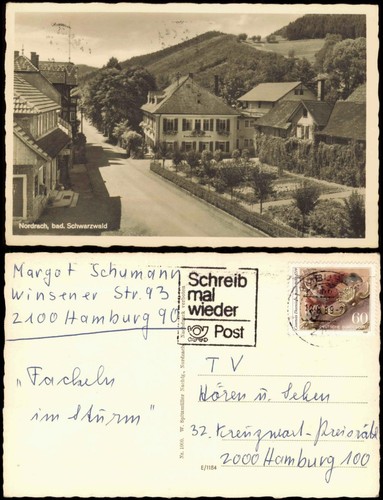 Nordrach, bad. Schwarzwald
Margot Schumann
Winsener Str. 93
2100 Hamburg 90
Schreib
mal
wieder
Post
60
"Fackeln
im Sturm"
TV
Hören u. Sehen
32. Kreuzwort-Preisrätsel
2000 Hamburg 100
E/1184